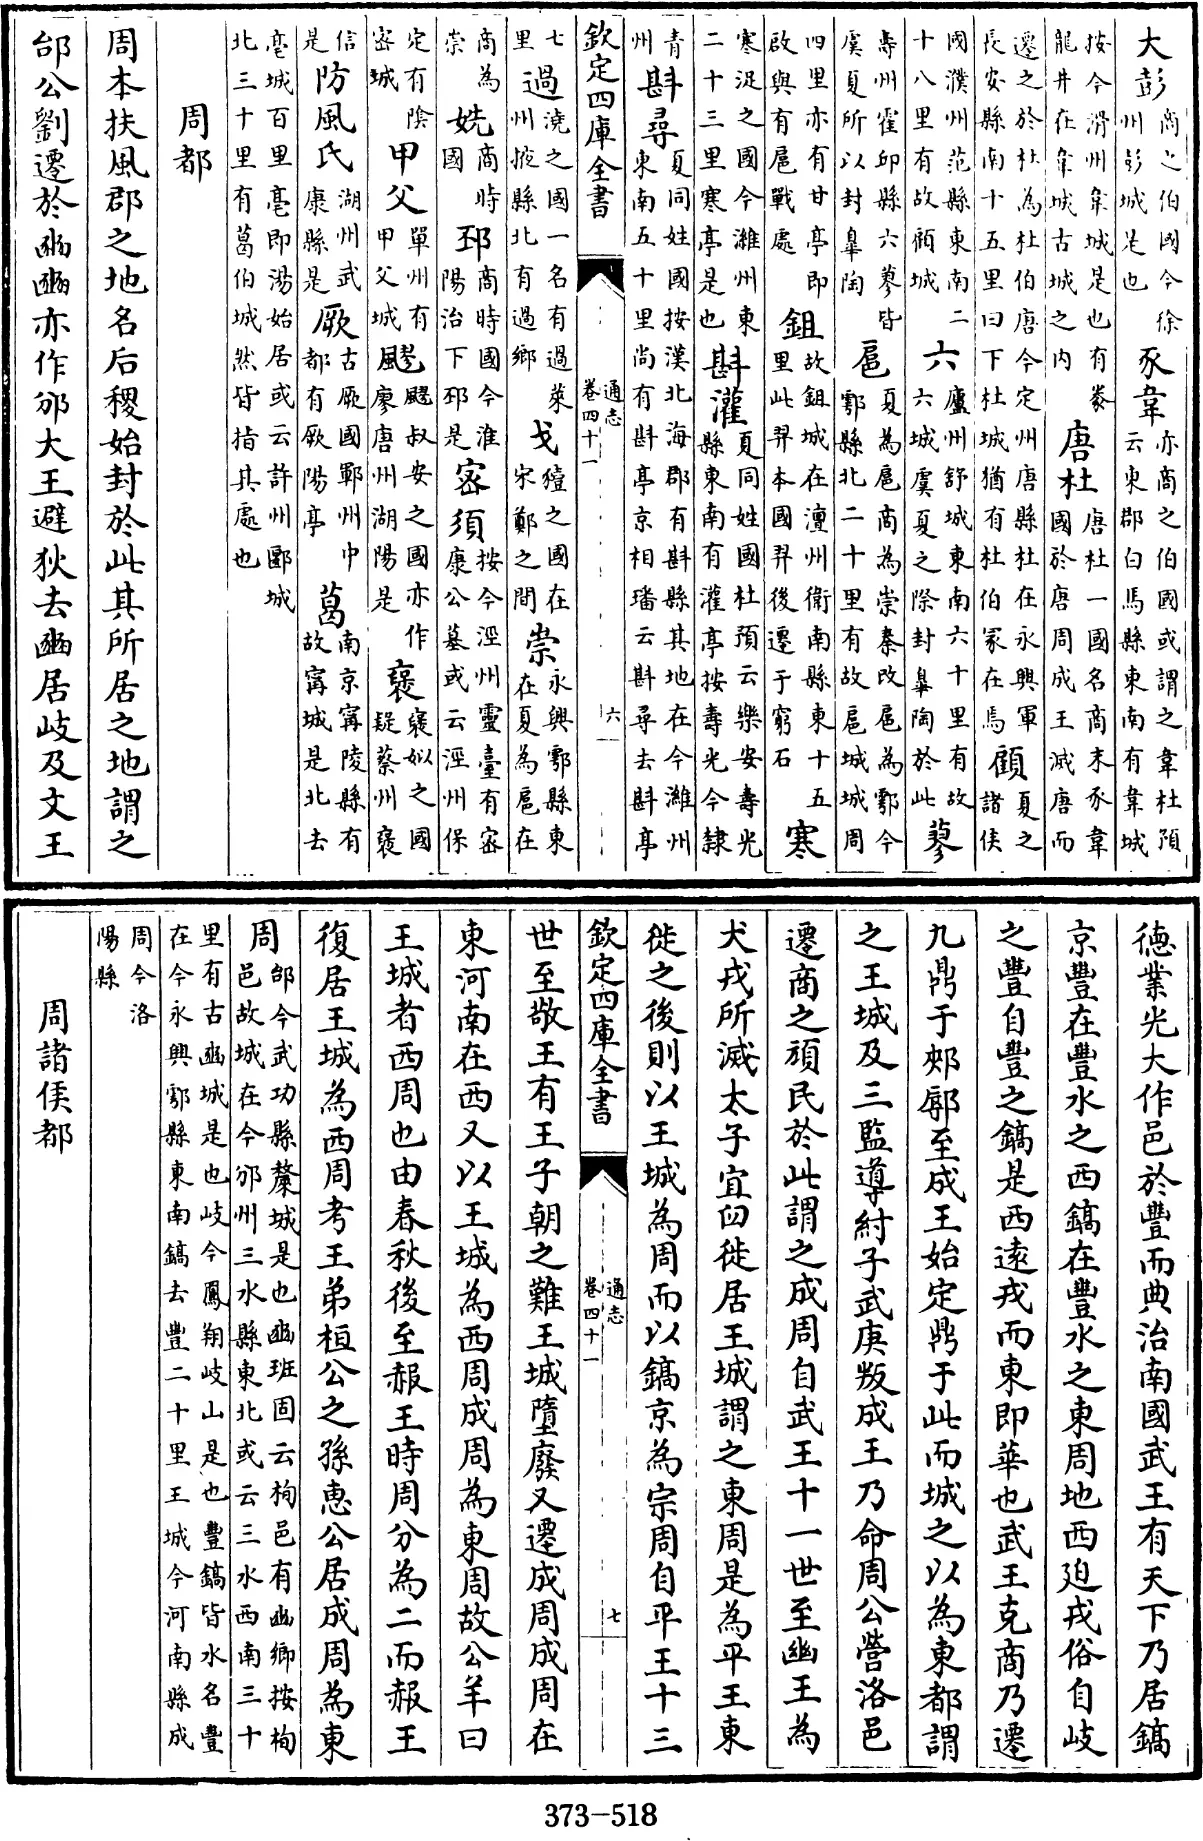 大彭商之伯國今徐州彭城是也豕韋亦商之伯國或謂之韋杜預云東郡白馬縣東南有韋城
按今滑州韋城是也有豢龍井在韋城古城之內唐杜唐杜一國名商末豕韋國於唐周成王滅唐而
遷之於杜為杜伯唐今定州唐縣杜在永興軍長安縣南十五里曰下杜城猶有杜伯冢在焉顧夏之諸侯
國濮州范縣東南二十八里有故顧城六廬州舒城東南六十里有故六城虞夏之際封臯陶於此蓼
壽州霍邱縣六蓼皆虞夏所以封臯陶扈夏為扈商為崇秦改扈為鄠今鄠縣北二十里有故扈城城周
四里亦有甘亭即啟與有扈戰處鉏故鉏城在澶州衛南縣東十五里此羿本國羿後遷于窮石寒
寒浞之國今濰州東二十三里寒亭是也斟灌夏同姓國杜預云樂安壽光縣東南有灌亭按壽光今隸
青州斟尋夏同姓國按漢北海郡有斟縣其地在今濰州東南五十里尚有斟亭京相璠云斟尋去斟亭
欽定四庫全書 通志卷四十一 六
七里過澆之國一名有過萊州掖縣北有過鄉戈豷之國在宋鄭之間崇永興鄠縣東在夏為扈在
商為崇姺商時國邳商時國今淮陽治下邳是密須按今涇州靈臺有密康公墓或云涇州保
定有陰密城甲父單州有甲父城飂飂叔安之國亦作廖唐州湖陽是褒褒姒之國疑蔡州褒
信是防風氏湖州武康縣是厥古厥國鄆州中都有厥陽亭葛南京甯陵縣有故甯城是北去
亳城百里亳即湯始居或云許州郾城北三十里有葛伯城然皆指其處也
周都
周本扶風郡之地名后稷始封於此其所居之地謂之
邰公劉遷於豳豳亦作邠大王避狄去豳居岐及文王
德業光大作邑於豐而典治南國武王有天下乃居鎬
京豐在豐水之西鎬在豐水之東周地西廹戎俗自岐
之豐自豐之鎬是西遠戎而東即華也武王克商乃遷
九鼎于郟鄏至成王始定鼎于此而城之以為東都謂
之王城及三監導紂子武庚叛成王乃命周公營洛邑
遷商之頑民於此謂之成周自武王十一世至幽王為
犬戎所滅太子宜臼徙居王城謂之東周是為平王東
徙之後則以王城為周而以鎬京為宗周自平王十三
欽定四庫全書 通志卷四十一 七
世至敬王有王子朝之難王城墮廢又遷成周成周在
東河南在西又以王城為西周成周為東周故公羊曰
王城者西周也由春秋後至赧王時周分為二而赧王
復居王城為西周考王弟桓公之孫惠公居成周為東
周邰今武功縣斄城是也豳班固云栒邑有豳鄉按栒邑故城在今邠州三水縣東北或云三水西南三十
里有古豳城是也岐今鳳翔岐山是也豐鎬皆水名豐在今永興鄠縣東南鎬去豐二十里王城今河南縣成
周今洛陽縣
周諸侯都
373-518